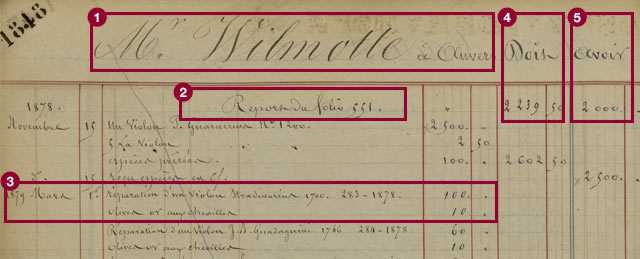 1848
1 Mr Wilmotte à Anvers 4 Doit 5 Avoir
2
1878. Report du folio 551. " 2 239 50 2 000.
Novembre 15 Un Violon P. Guarnerius No. 1200. 2 500. "
5 za Violon " 2 50
espèces prêtées 100. " 2 602 50
do. 15 Reçu espèces en 2 500. "
3
1879 Mars 1er. Réparation d'un Violon Stradivarius 1700. 283-1878. 100. "
Olives or aux chevilles 10 "
Réparation d'un Violon J. B. Guadagnini 1766 284-1878 60 "
Olives or aux chevilles 10 "